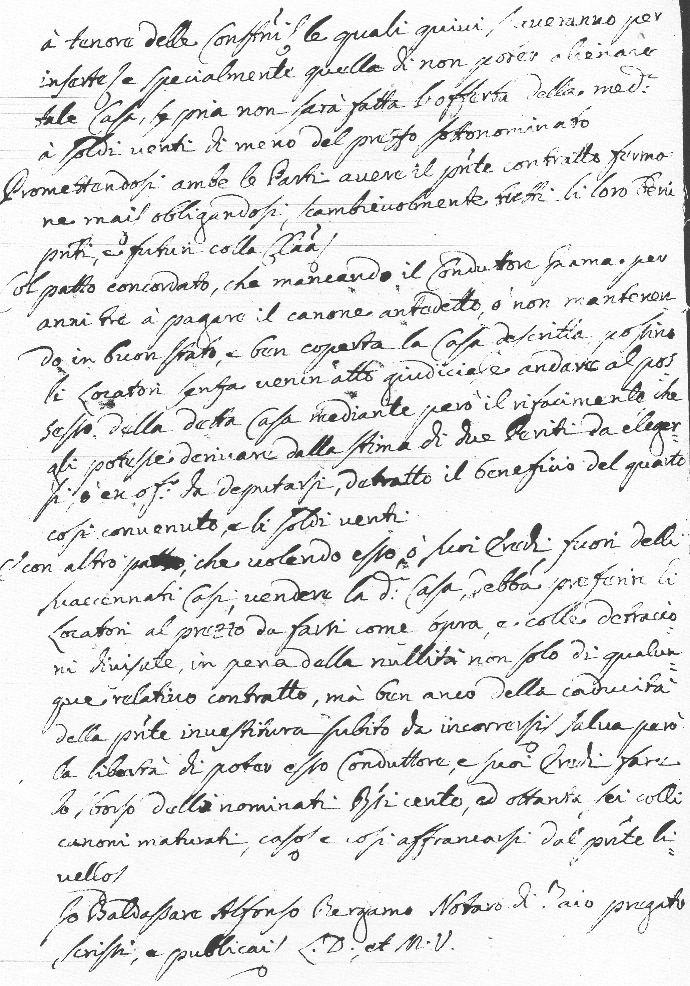 à tenore delle Conffñi le quali quivi s'averanno per
inserte, e specialmente quella di non poter alienare
tale Casa, se pria non sarà fatta l'offerta della med.ª
à soldi venti di meno del prezzo sottonominato
Promettendosi ambe le Parti avere il pñte contratto fermo
ne mai obligandosi scambievolmente tutti li loro Beni
pñti, e futuri colla Claã
Col patto concordato, che mancando il Conduttore Grama per
anni tre à pagare il canone antedetto, ò non mantenen
do in buon stato, e ben coperta la Casa descritta possino
li Locatori senza venin' atto giudiciale andare al pos
sesso della detta Casa mediante però il rifacimento che
gli potesse derivare dalla stima di due Periti da eleger-
si, ò ex off.º da deputarsi, detratto il beneficio del quarto
cosi convenuto, e li soldi venti
E con altro patto, che volendo esso, ò suoi Eredi fuori delli
suaccennati Casi, vendere la d.ª Casa, debba preferire li
Locatori al prezzo da farsi come sopra, e colle detracio
ni divisate, in pena della nullità non solo di qualun-
que relativo contratto, mà ben anco della caducità
della pñte investitura subito da incorrersi, salva però
la libertà di poter esso Conduttore, e suoi Eredi fare
lo sborso delli nominati cento, ed ottanta sei colli
canoni maturati, e cosi affrancarsi dal pñte li-
vello
Io Baldassare Alfonso Bergamo Notaro di pregato
scrissi, e publicai L. D. et M. V.